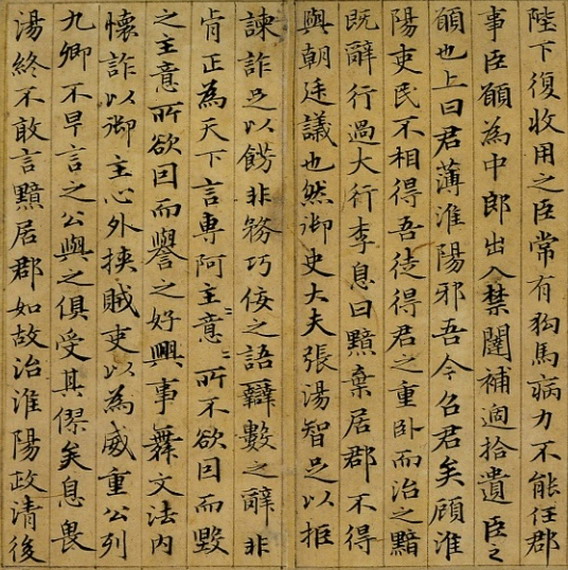 陛下復收用之臣常有狗馬病力不能任郡
事臣願為中郎出入禁闥補過拾遺臣之
願也上曰君薄淮陽邪吾今召君矣顧淮
陽吏民不相得吾徒得君之重臥而治之黯
既辭行過大行李息曰黯棄居郡不得
與朝廷議也然御史大夫張湯智足以拒
諫詐足以飾非務巧佞之語辯數之辭非
肯正為天下言專阿主意〻〻所不欲因而毀
之主意所欲因而譽之好興事舞文法內
懷詐以御主心外挾賊吏以為威重公列
九卿不早言之公與之俱受其僇矣息畏
湯終不敢言黯居郡如故治淮陽政清後